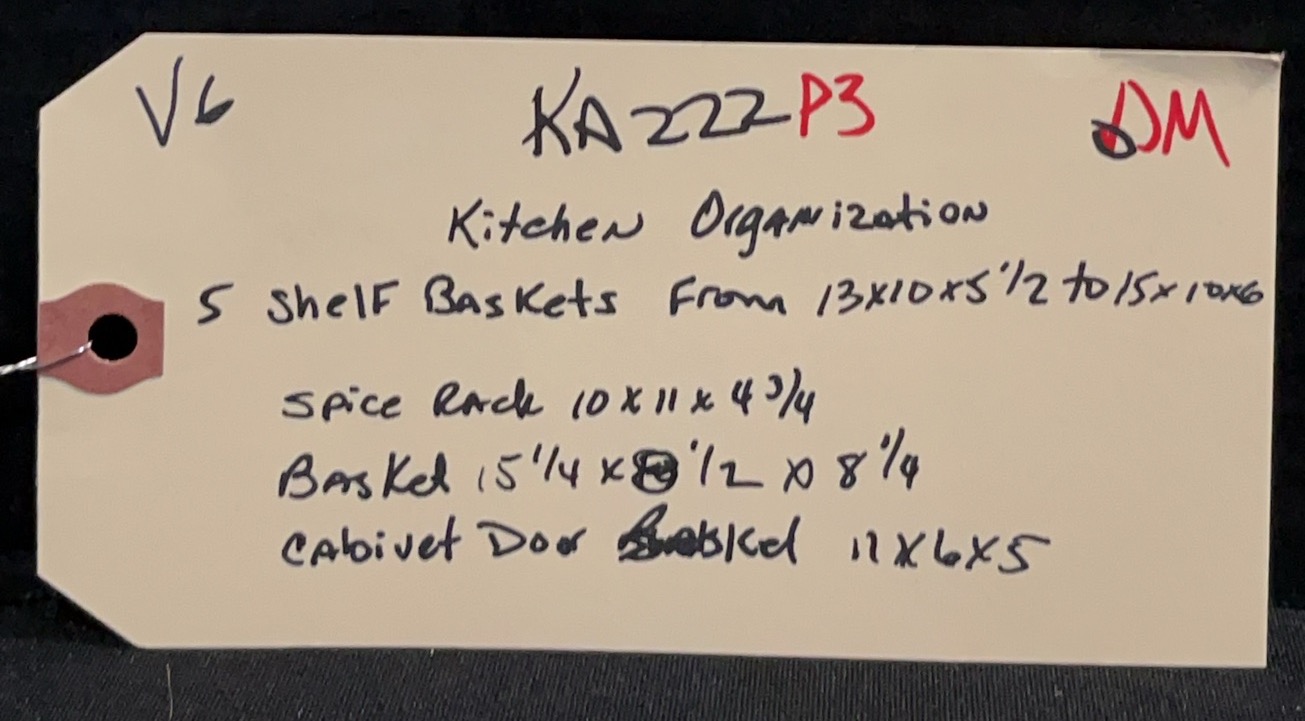 V6 KA222 P3 DM
Kitchen Organization
5 Shelf Baskets From 13x10x5 1/2 to 15x10x6
Spice Rack 10 x 11 x 4 3/4
Basket 15 1/4 x 1/2 x 8 1/4
Cabinet Door Basket 11x6x5